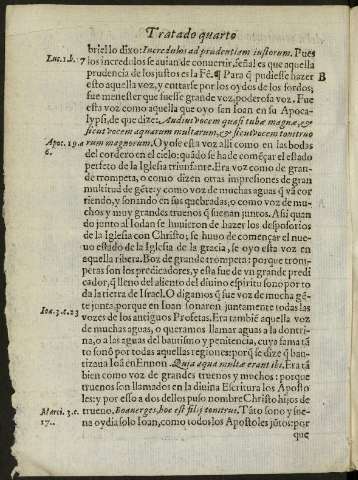 Tratado quarto
briello dixo: Incredulos ad prudentiam iustorum. Pues
Luc. 1. b. 7
los incredulos se auian de conuertir, señal es que aquella
prudencia de los justos es la Fê. ¶ Para q̃ pudiesse hazer
B
esto aquella voz, y entrarse por los oydos de los sordos;
fue menester que fuesse grande voz, poderosa voz. Fue
esta voz como aquella que oyo san Ioan en su Apoca-
lypsi, de que dize: Audiui vocem quasi tubæ magnæ, &
sicut vocem aquarum multarum, & sicut vocem tonitruo
Apoc. 19. a
6.
rum magnorum. Oyose esta voz alli como en las bodas
del cordero en el cielo: quãdo se ha de começar el estado
perfeto de la Iglesia triunfante. Era voz como de gran-
de trompeta, o como dizen otras impresiones de gran
multitud de gẽte: y como voz de muchas aguas q̃ vã cor
riendo, y sonando en sus quebradas, o como voz de mu-
chos y muy grandes truenos q̃ suenan juntos. Assi quan
do junto al Iordan se huuieron de hazer los desposorios
de la Iglesia con Christo, se huuo de començar el nue-
uo estado de la Iglesia de la gracia, se oyo esta voz en
aquella ribera. Boz de grande trompera: porque trom-
petas son los predicadores, y esta fue de vn grande predi
cador, q̃ lleno del aliento del diuino espiritu sono por to
da la tierra de Israel. O digamos q̃ fue voz de mucha gẽ-
te junta, porque en Ioan sonaron juntamente todas las
Ioã. 3. c. 23
vozes de los antiguos Profetas. Era tambiẽ aquella voz
de muchas aguas, o queramos llamar aguas a la dontri-
na, o a las aguas del bautismo y penitencia, cuya fama tã
to sonô por todas aquellas regiones: porq̃ se dize q̃ bau-
tizaua Ioã en Ennon. Quia aquæ multæ erant ibi. Era tã
bien como voz de grandes truenos y muchos: porque
truenos son llamados en la diuina Escritura los Aposto
les: y por esso a dos dellos puso nombre Christo hijos de
Marci. 3. c.
17..
trueno. Boanerges, hoc est filij tonitrui. Tãto sono y sue-
na oy dia solo Ioan, como todos los Apostoles jũtos: por
que